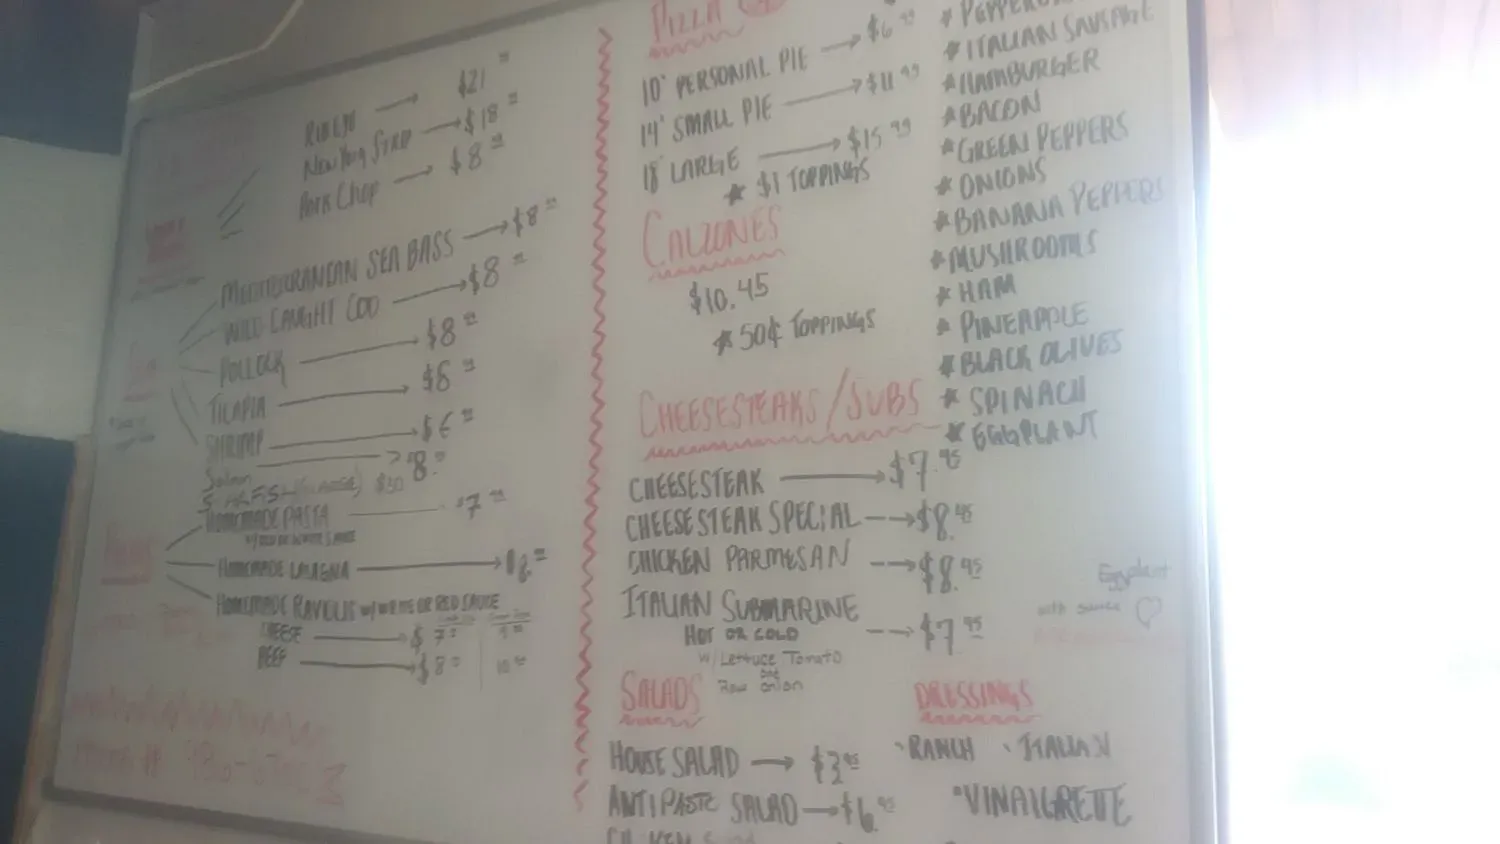 RIBEYE → $21
NEW YORK STRIP → $18
PORK CHOP → $8
MEDITERRANEAN SEA BASS → $8
WILD CAUGHT COD → $8
POLLOCK → $8
TILAPIA → $8
SHRIMP → $6
Salmon → 8.
HOMEMADE PASTA $7
W/RED OR WHITE SAUCE
HOMEMADE LASAGNA → $8
HOMEMADE RAVIOLIS W/WHITE OR RED SAUCE
CHEESE → $7
BEEF → $8 10
PIZZA
10" PERSONAL PIE → $6.95
14" SMALL PIE → $11.95
18" LARGE → $15.99
* $1 TOPPINGS
CALZONES
$10.45
* 50¢ TOPPINGS
CHEESESTEAKS/SUBS
CHEESESTEAK → $7.95
CHEESESTEAK SPECIAL → $8.95
CHICKEN PARMESAN → $8.95
ITALIAN SUBMARINE
HOT OR COLD → $7.95
W/ Lettuce Tomato
and
Raw onion
SALADS
HOUSE SALAD → $3.95
ANTIPASTE SALAD → $6.95
* PEPPERONI
* ITALIAN SAUSAGE
* HAMBURGER
* BACON
* GREEN PEPPERS
* ONIONS
* BANANA PEPPERS
* MUSHROOMS
* HAM
* PINEAPPLE
* BLACK OLIVES
* SPINACH
* EGGPLANT
Eggplant
with sauce
DRESSINGS
• RANCH • ITALIAN
• VINAIGRETTE